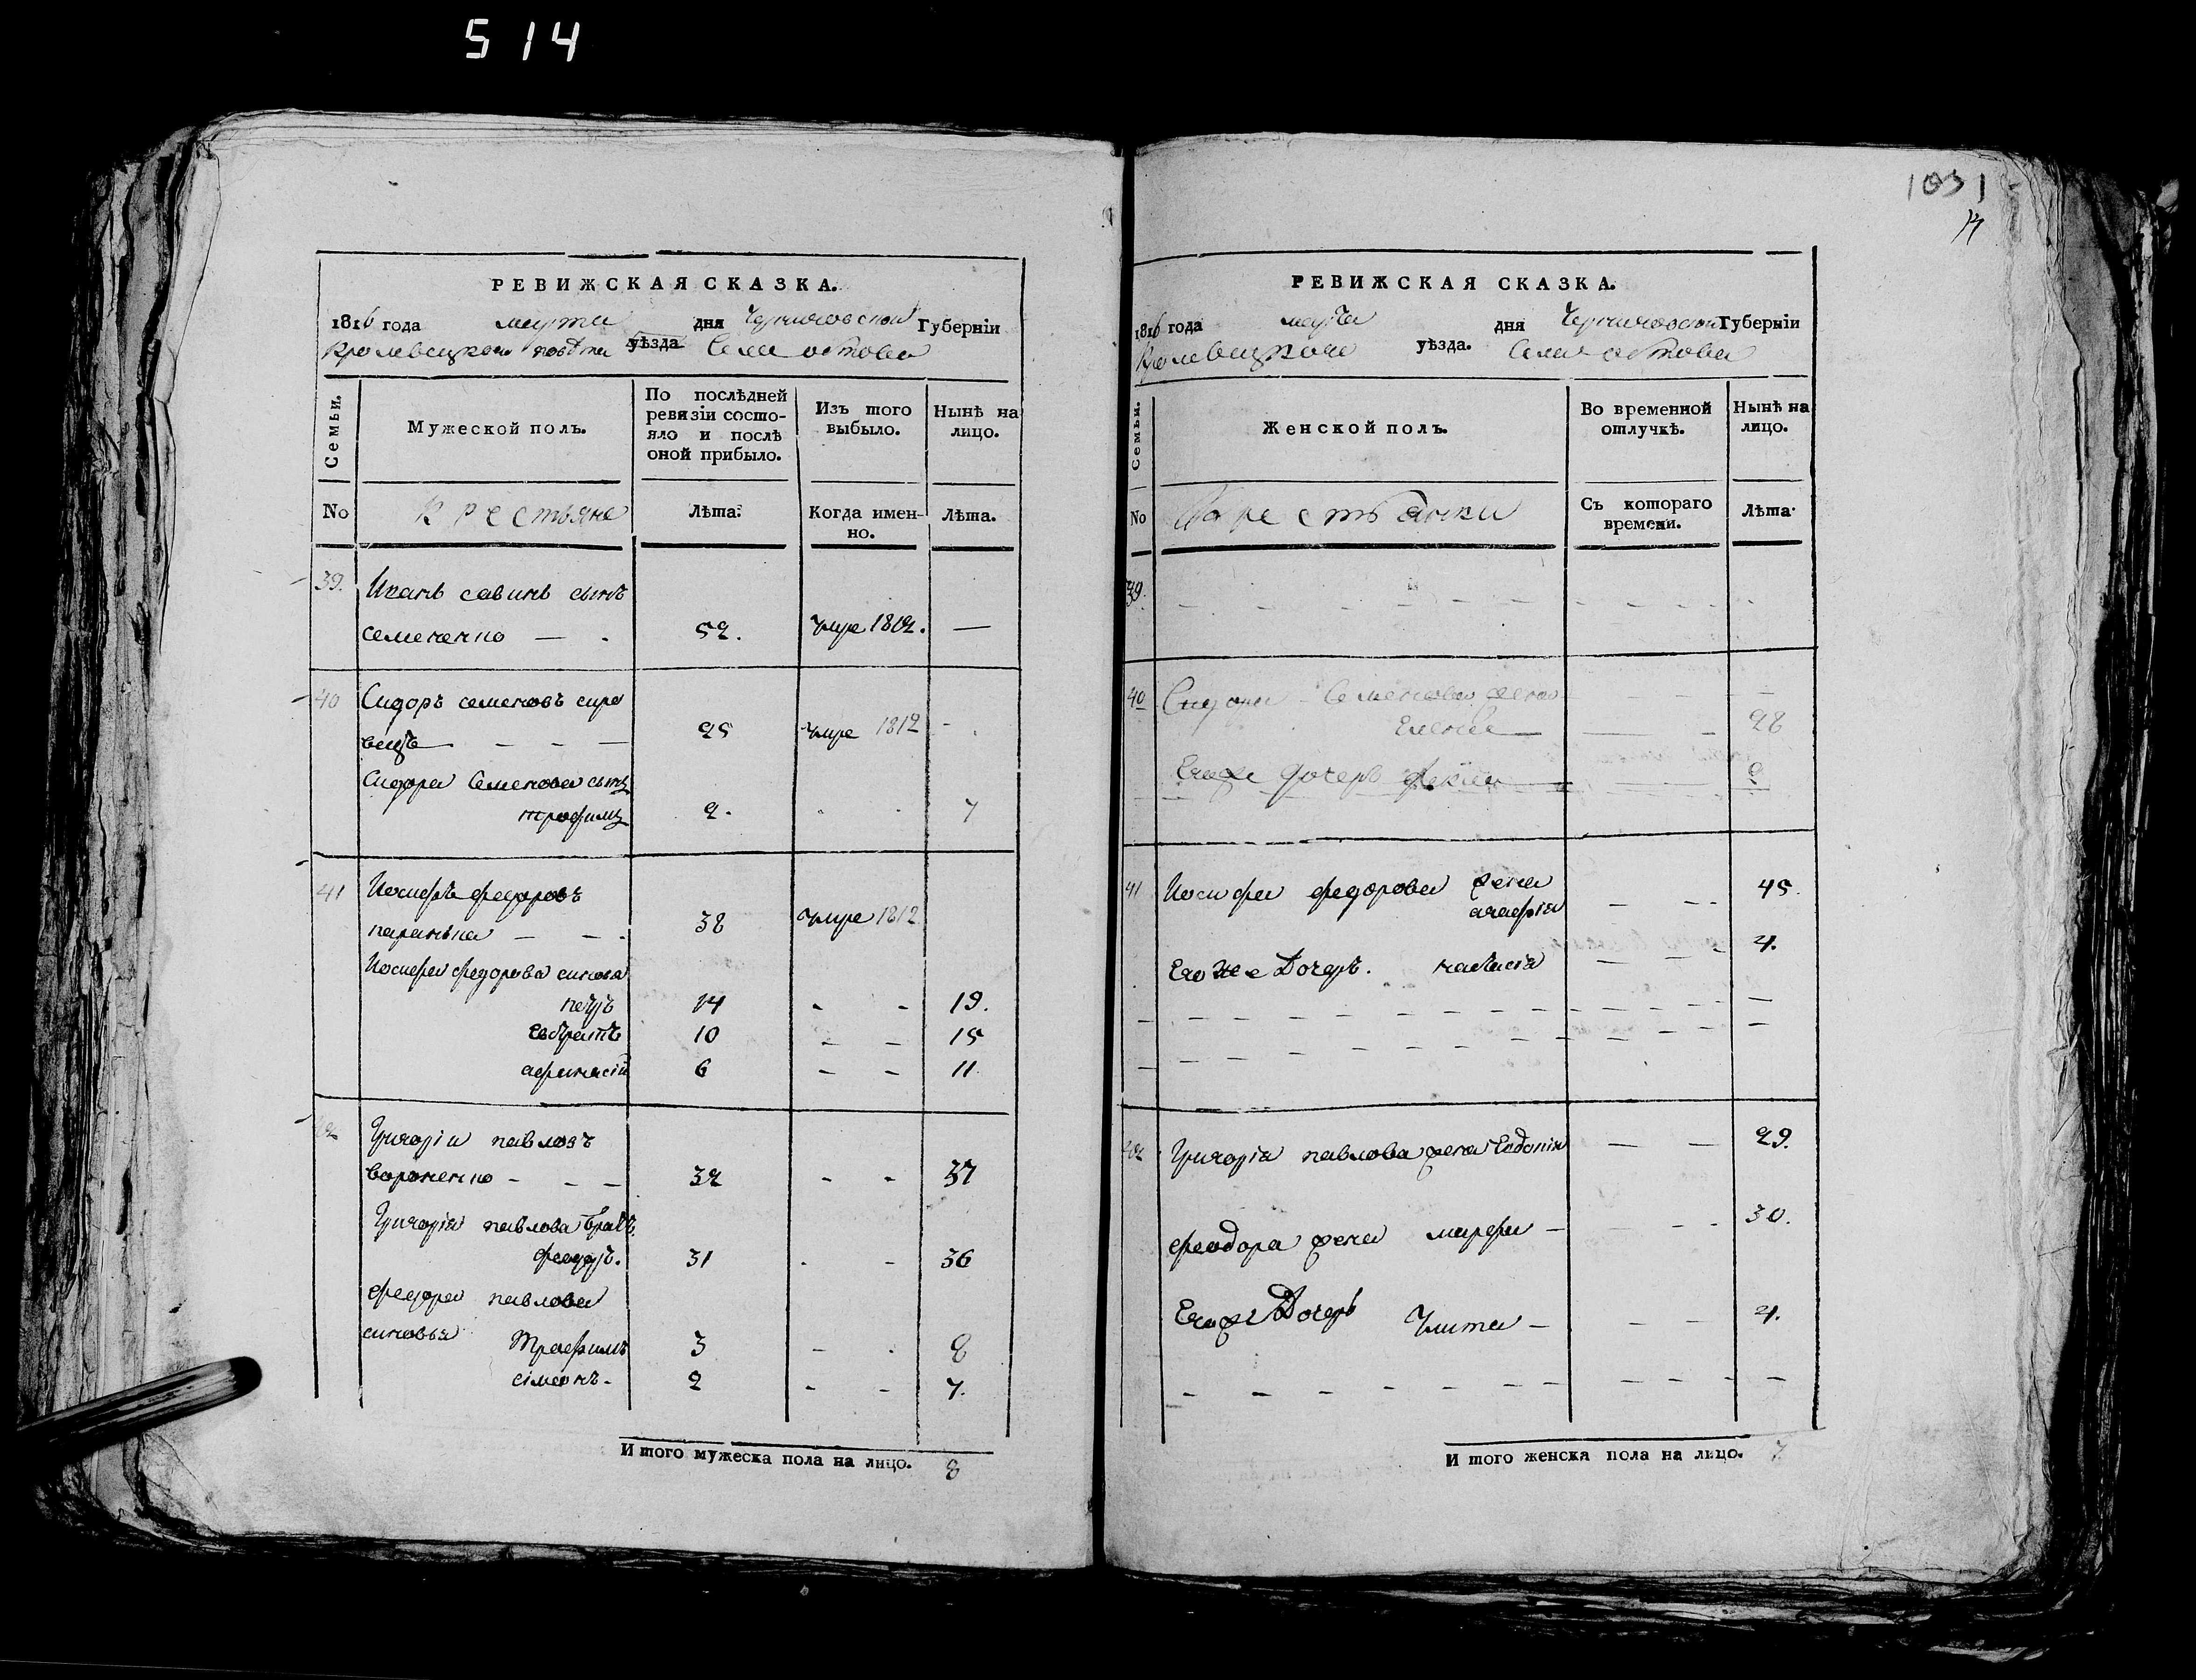 514
1031
РЕВИЖСКАЯ СКАЗКА.
1816 года марта дня Черниговской Губерніи
Кролевецкого повѣта уѣзда Села остова
Семьи.
Мужеской полъ.
По послѣдней ревизіи состояло и послѣ оной прибыло.
Изъ того выбыло.
Нынѣ на лицо.
No
Крестьяне
Лѣта.
Когда именно.
Лѣта.
39. Иванъ савинъ сынъ
семененко — . 52. умре 1812. —
40 Сидоръ семеновъ сиро
вецъ — — — 25 умре 1812 - .
Сидора Семенова сынъ
трофимъ 2. . . 7
41 Иосифъ федоровъ
паранька — — . 38 умре 1812
Иосифа федорова синова
петръ 14 - - 19.
евстратъ 10 - - 15
афанасій 6 - - 11
42 Григорій павловъ
вороненко - - - 32 - - 37
Григорія павлова братъ
федоръ. 31 . - 36
федора павлова
синовья Трофимъ 3 - . 8
сімеонъ - 2 - - 7.
И того мужеска пола на лицо. 8
РЕВИЖСКАЯ СКАЗКА.
1816 года марта дня Черниговской Губерніи
Кролевецкого уѣзда. Села остова
Семьи.
Женской полъ.
Во временной отлучкѣ.
Нынѣ на лицо.
No
Крестьянки
Съ котораго времени.
Лѣта.
39.
40 Сидора Семенова жена
Елена — — - 28
Егоже дочерь
41 Иосифа федорова жена
агафія — - - 45.
Егоже Дочерь. настасія — — - 4.
42 Григорія павлова жена Евдокія — — 29.
феодора жена марфа — - - - 30.
Егоже Дочерь Улита — - - 4.
И того женска пола на лицо. 7